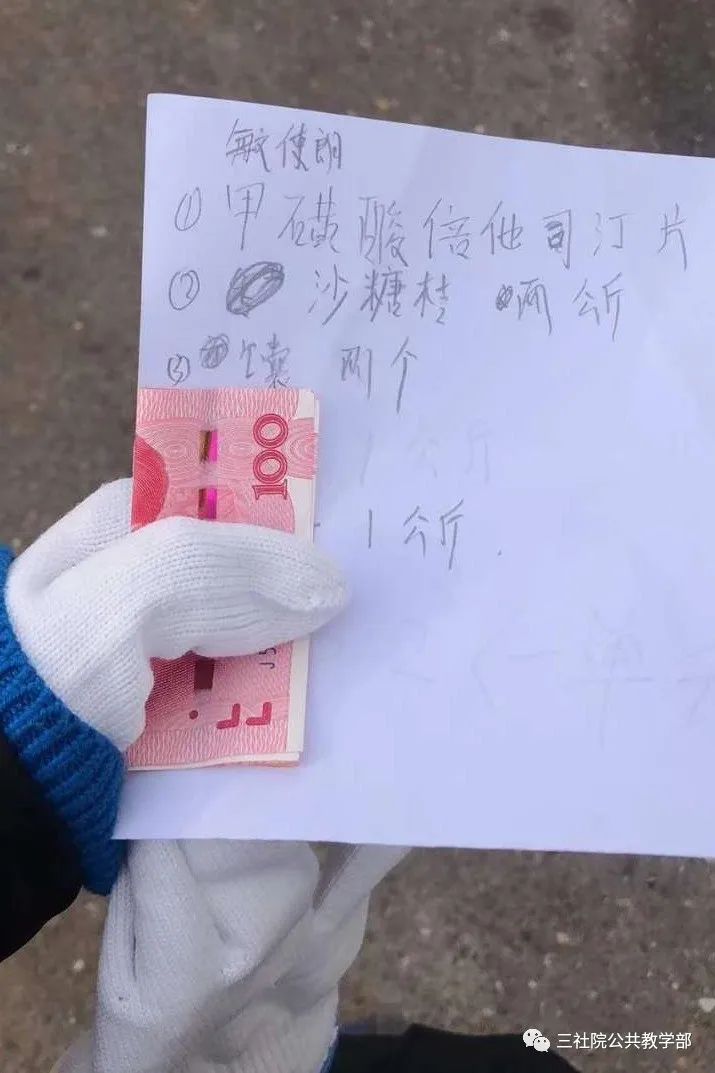 敏使朗
① 甲磺酸倍他司汀片
② 沙糖桔 两公斤
③ 馕 两个
1公斤
1公斤.
100
J5
三社院公共教学部